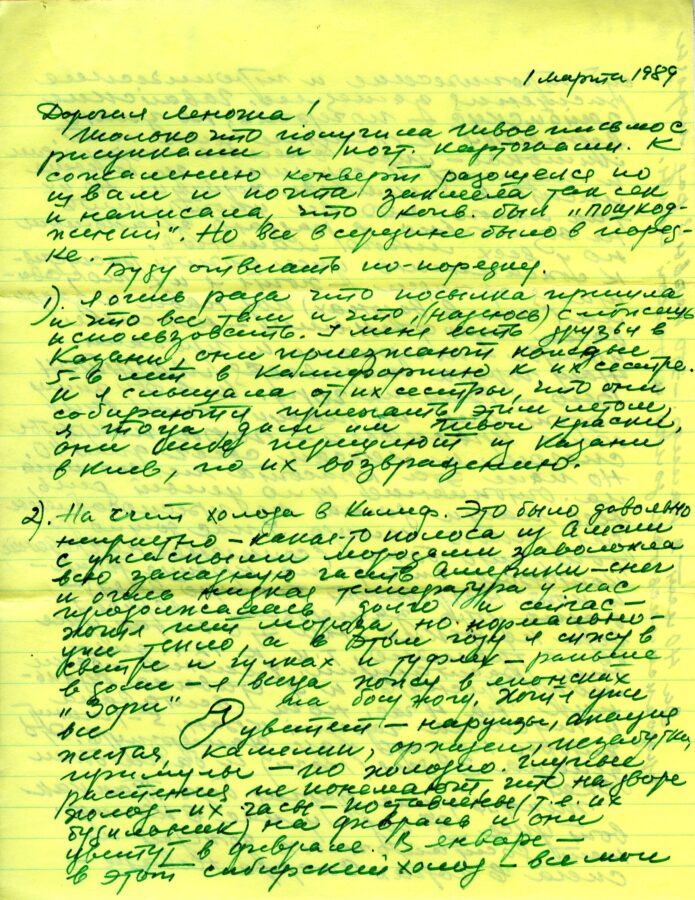 1 марта 1989
Дорогая Леночка!
Только что получила твое письмо с
рисунками и почт. карточками. К
сожалению конверт разошелся по
швам и почта заклеила так сяк
и написала, что конв. был „пошкод-
жений". Но все в середине было в поряд-
ке.
Буду отвечать по-порядку.
1). Я очень рада что посылка пришла
и что все там и что, (надеюсь) сможешь
использовать. У меня есть друзья в
Казани, они приезжают каждые
5-ть лет в Калифорнию к их сестре.
И я слышала от их сестры, что они
собираются приехать этим летом,
я тогда дам им твои краски,
они тебе перешлют из Казани
в Киев, по их возвращению.
2). На счет холода в Калиф. Это было довольно
неприятно – какая-то полоса из Аляски
с ужасными морозами заволокла
всю западную часть Америки – снег
и очень низкая температура у нас
продолжалась долго и сейчас –
хотя нет мороза, но нормально –
уже тепло, а в этом году я сижу в
светре и чулках и туфлях – раньше
в доме – я всегда хожу в японских
„Зори" на босу ногу. Хотя уже
все цветет – наружи, акация
желтая, камелии, орхидеи, незабудки,
примулы – но холодно. Глупые
растения не понемают, что на дворе
холод – их часы – поставлены (т.е. их
будильник) на февраль и они
цветут в феврале. В январе –
в этот сибирский холод – все мои